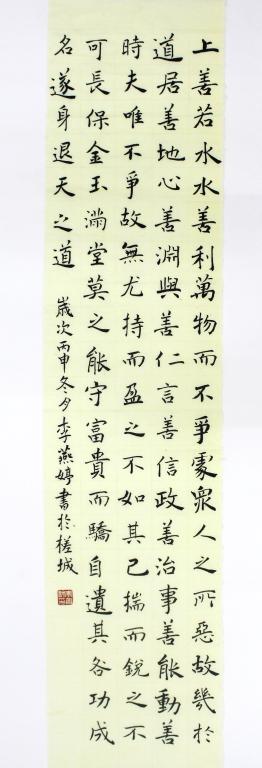 上善若水水善利萬物而不爭處眾人之所惡故幾於
道居善地心善淵與善仁言善信政善治事善能動善
時夫唯不爭故無尤持而盈之不如其已揣而銳之不
可長保金玉滿堂莫之能守富貴而驕自遺其咎功成
名遂身退天之道
歲次丙申冬月李燕婷書於槎城